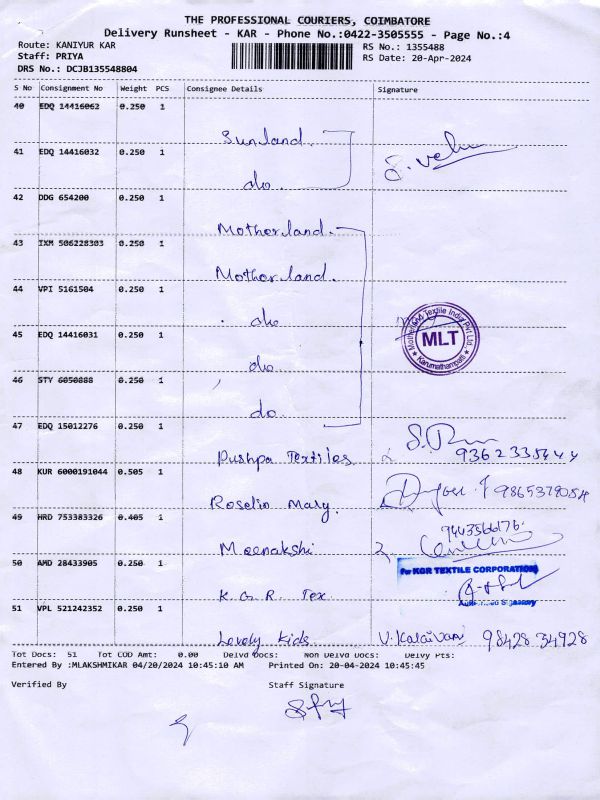 THE PROFESSIONAL COURIERS, COIMBATORE
Delivery Runsheet - KAR - Phone No.:0422-3505555 - Page No.:4
Route: KANIYUR KAR
Staff: PRIYA
DRS No.: DCJB135548804
RS No.: 1355488
RS Date: 20-Apr-2024
S No Consignment No Weight PCS Consignee Details Signature
40 EDQ 14416062 0.250 1
Sunland
41 EDQ 14416032 0.250 1
S. Velu
do
42 DDG 654200 0.250 1
Motherland
43 IXM 506228303 0.250 1
Motherland
44 VPI 5161504 0.250 1
do
Motherland Textile India Pvt Ltd.
MLT
Karumathampatti
45 EDQ 14416031 0.250 1
do
46 STY 6050888 0.250 1
do
47 EDQ 15012276 0.250 1
Pushpa Textiles
48 KUR 6000191044 0.505 1
Roselin Mary
49 HRD 753383326 0.405 1
Meenakshi
50 AMD 28433905 0.250 1
For KGR TEXTILE CORPORATION
Authorised Signatory
K.G.R. Tex
51 VPL 521242352 0.250 1
Lovely Kids V. Kalaivani 98428 34928
Tot Docs: 51 Tot COD Amt: 0.00 Delvd Docs: Non Delvd Docs: Delvy Pts:
Entered By :MLAKSHMIKAR 04/20/2024 10:45:10 AM Printed On: 20-04-2024 10:45:45
Verified By Staff Signature